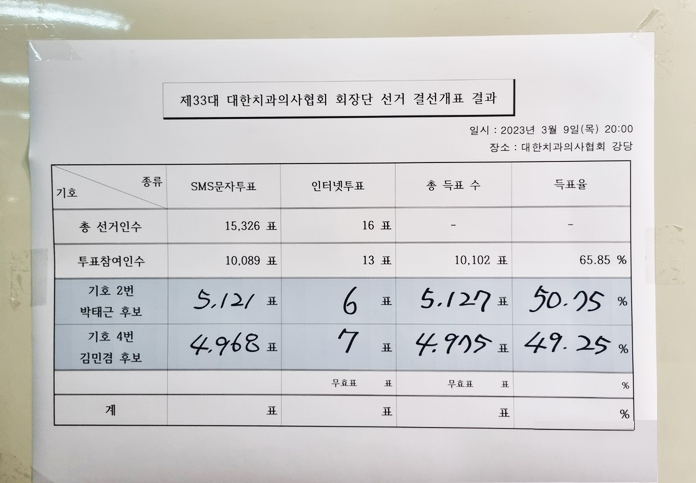 제33대 대한치과의사협회 회장단 선거 결선개표 결과
일시 : 2023년 3월 9일(목) 20:00
장소 : 대한치과의사협회 강당
종류
기호
SMS문자투표 인터넷투표 총 득표 수 득표율
총 선거인수 15,326 표 16 표 - -
투표참여인수 10,089 표 13 표 10,102 표 65.85 %
기호 2번
박태근 후보 5,121 표 6 표 5,127 표 50.75 %
기호 4번
김민겸 후보 4,968 표 7 표 4,975 표 49.25 %
무효표 표 무효표 표 %
계 표 표 표 %